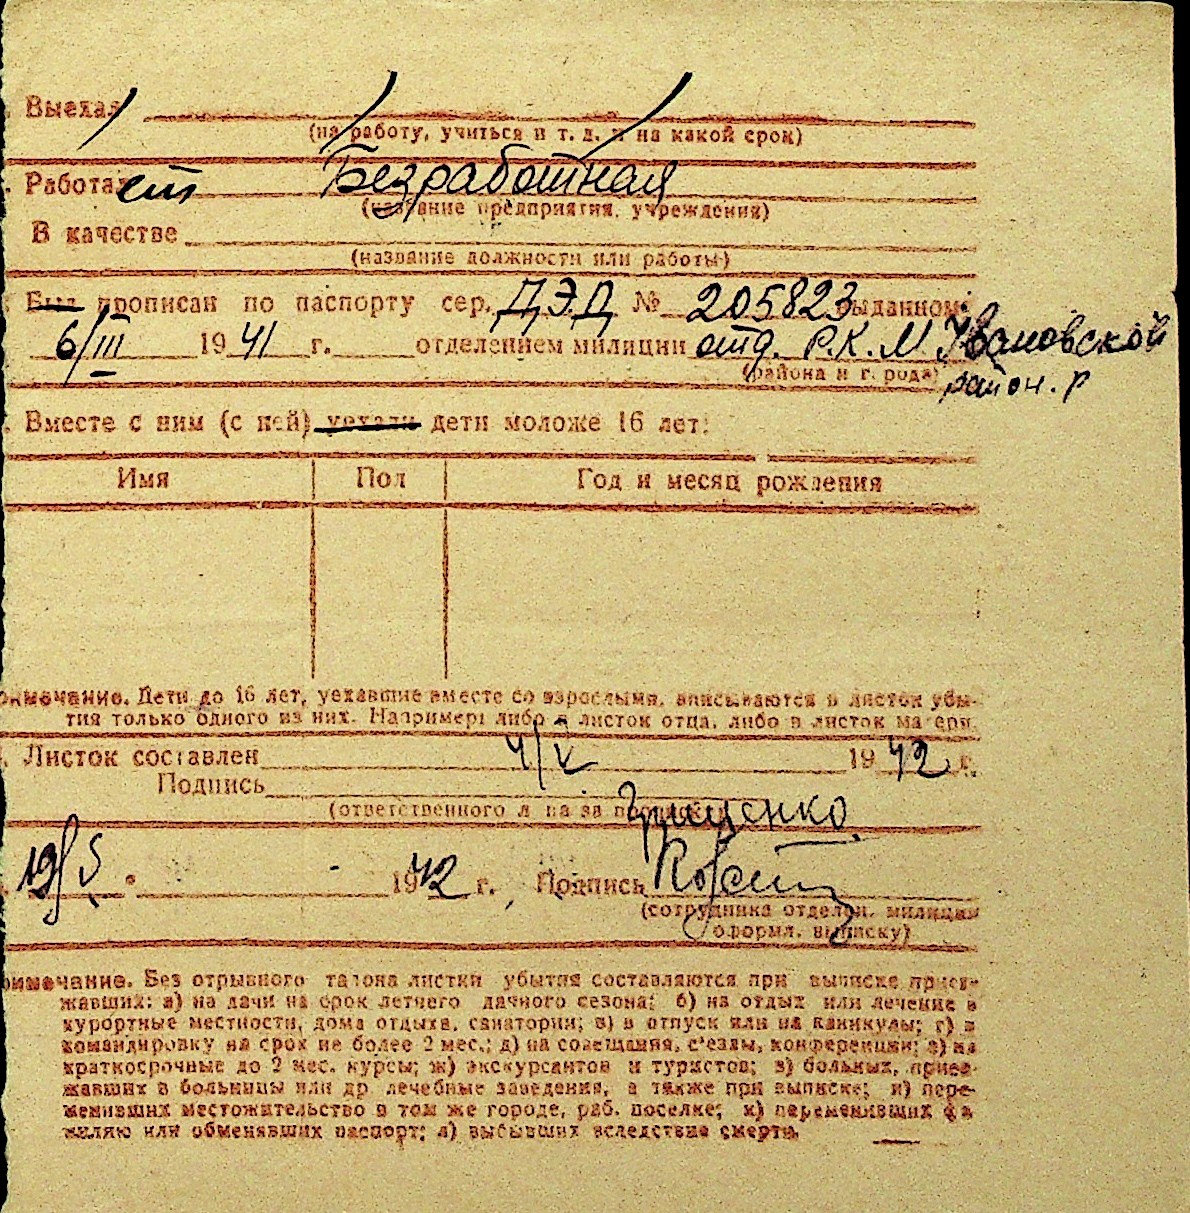 Выехал
(на работу, учиться и т. д. и на какой срок)
Работает Безработная
(название предприятия, учреждения)
В качестве
(название должности или работы)
Был прописан по паспорту сер. ДЭД № 205823 выданному
6/III 1941 г. отделением милиции отд. Р.К.М Ивановской
(района и города) район. р
Вместе с ним (с ней) уехали дети моложе 16 лет:
Имя Пол Год и месяц рождения
римечание. Дети до 16 лет, уехавшие вместе со взрослыми, вписываются в листок убы-
тия только одного из них. Например: либо в листок отца, либо в листок матери.
Листок составлен 4/V 1942 г.
Подпись Грищенко
(ответственного лица за прописку)
19/5 1942 г. Подпись
(сотрудника отделен. милиции
оформл. выписку)
римечание. Без отрывного талона листки убытия составляются при выписке приез-
жавших: а) на дачи на срок летнего дачного сезона; б) на отдых или лечение в
курортные местности, дома отдыха, санатории; в) в отпуск или на каникулы; г) в
командировку на срок не более 2 мес.; д) на совещания, с'езды, конференции; е) на
краткосрочные до 2 мес. курсы; ж) экскурсантов и туристов; з) больных, приез-
жавших в больницы или др лечебные заведения, а также при выписке; и) пере-
менивших местожительство в том же городе, раб. поселке; к) переменивших фа
милию или обменявших паспорт; л) выбывших вследствие смерти.